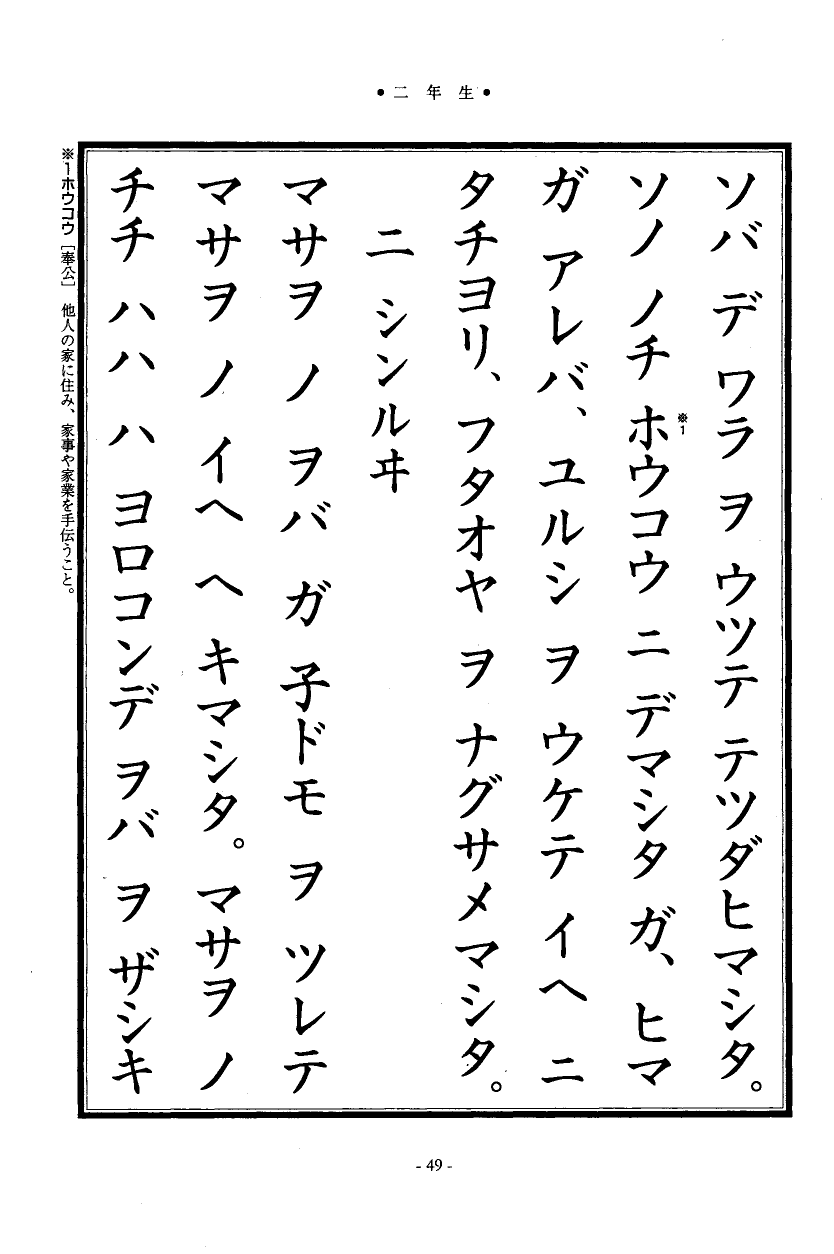 •二年生•
ソバ デ ワラ ヲ ウツテ テツダヒマシタ。
ソノ ノチ ホウコウ ニ デマシタ ガ、ヒマ
※1
ガ アレバ、ユルシ ヲ ウケテ イヘ ニ
タチヨリ、フタオヤ ヲ ナグサメマシタ。
二 シンルヰ
マサヲ ノ ヲバ ガ 子ドモ ヲ ツレテ
マサヲ ノ イヘ ヘ キマシタ。マサヲ ノ
チチ ハハ ハ ヨロコンデ ヲバ ヲ ザシキ
※1ホウコウ[奉公] 他人の家に住み、家事や家業を手伝うこと。
- 49 -